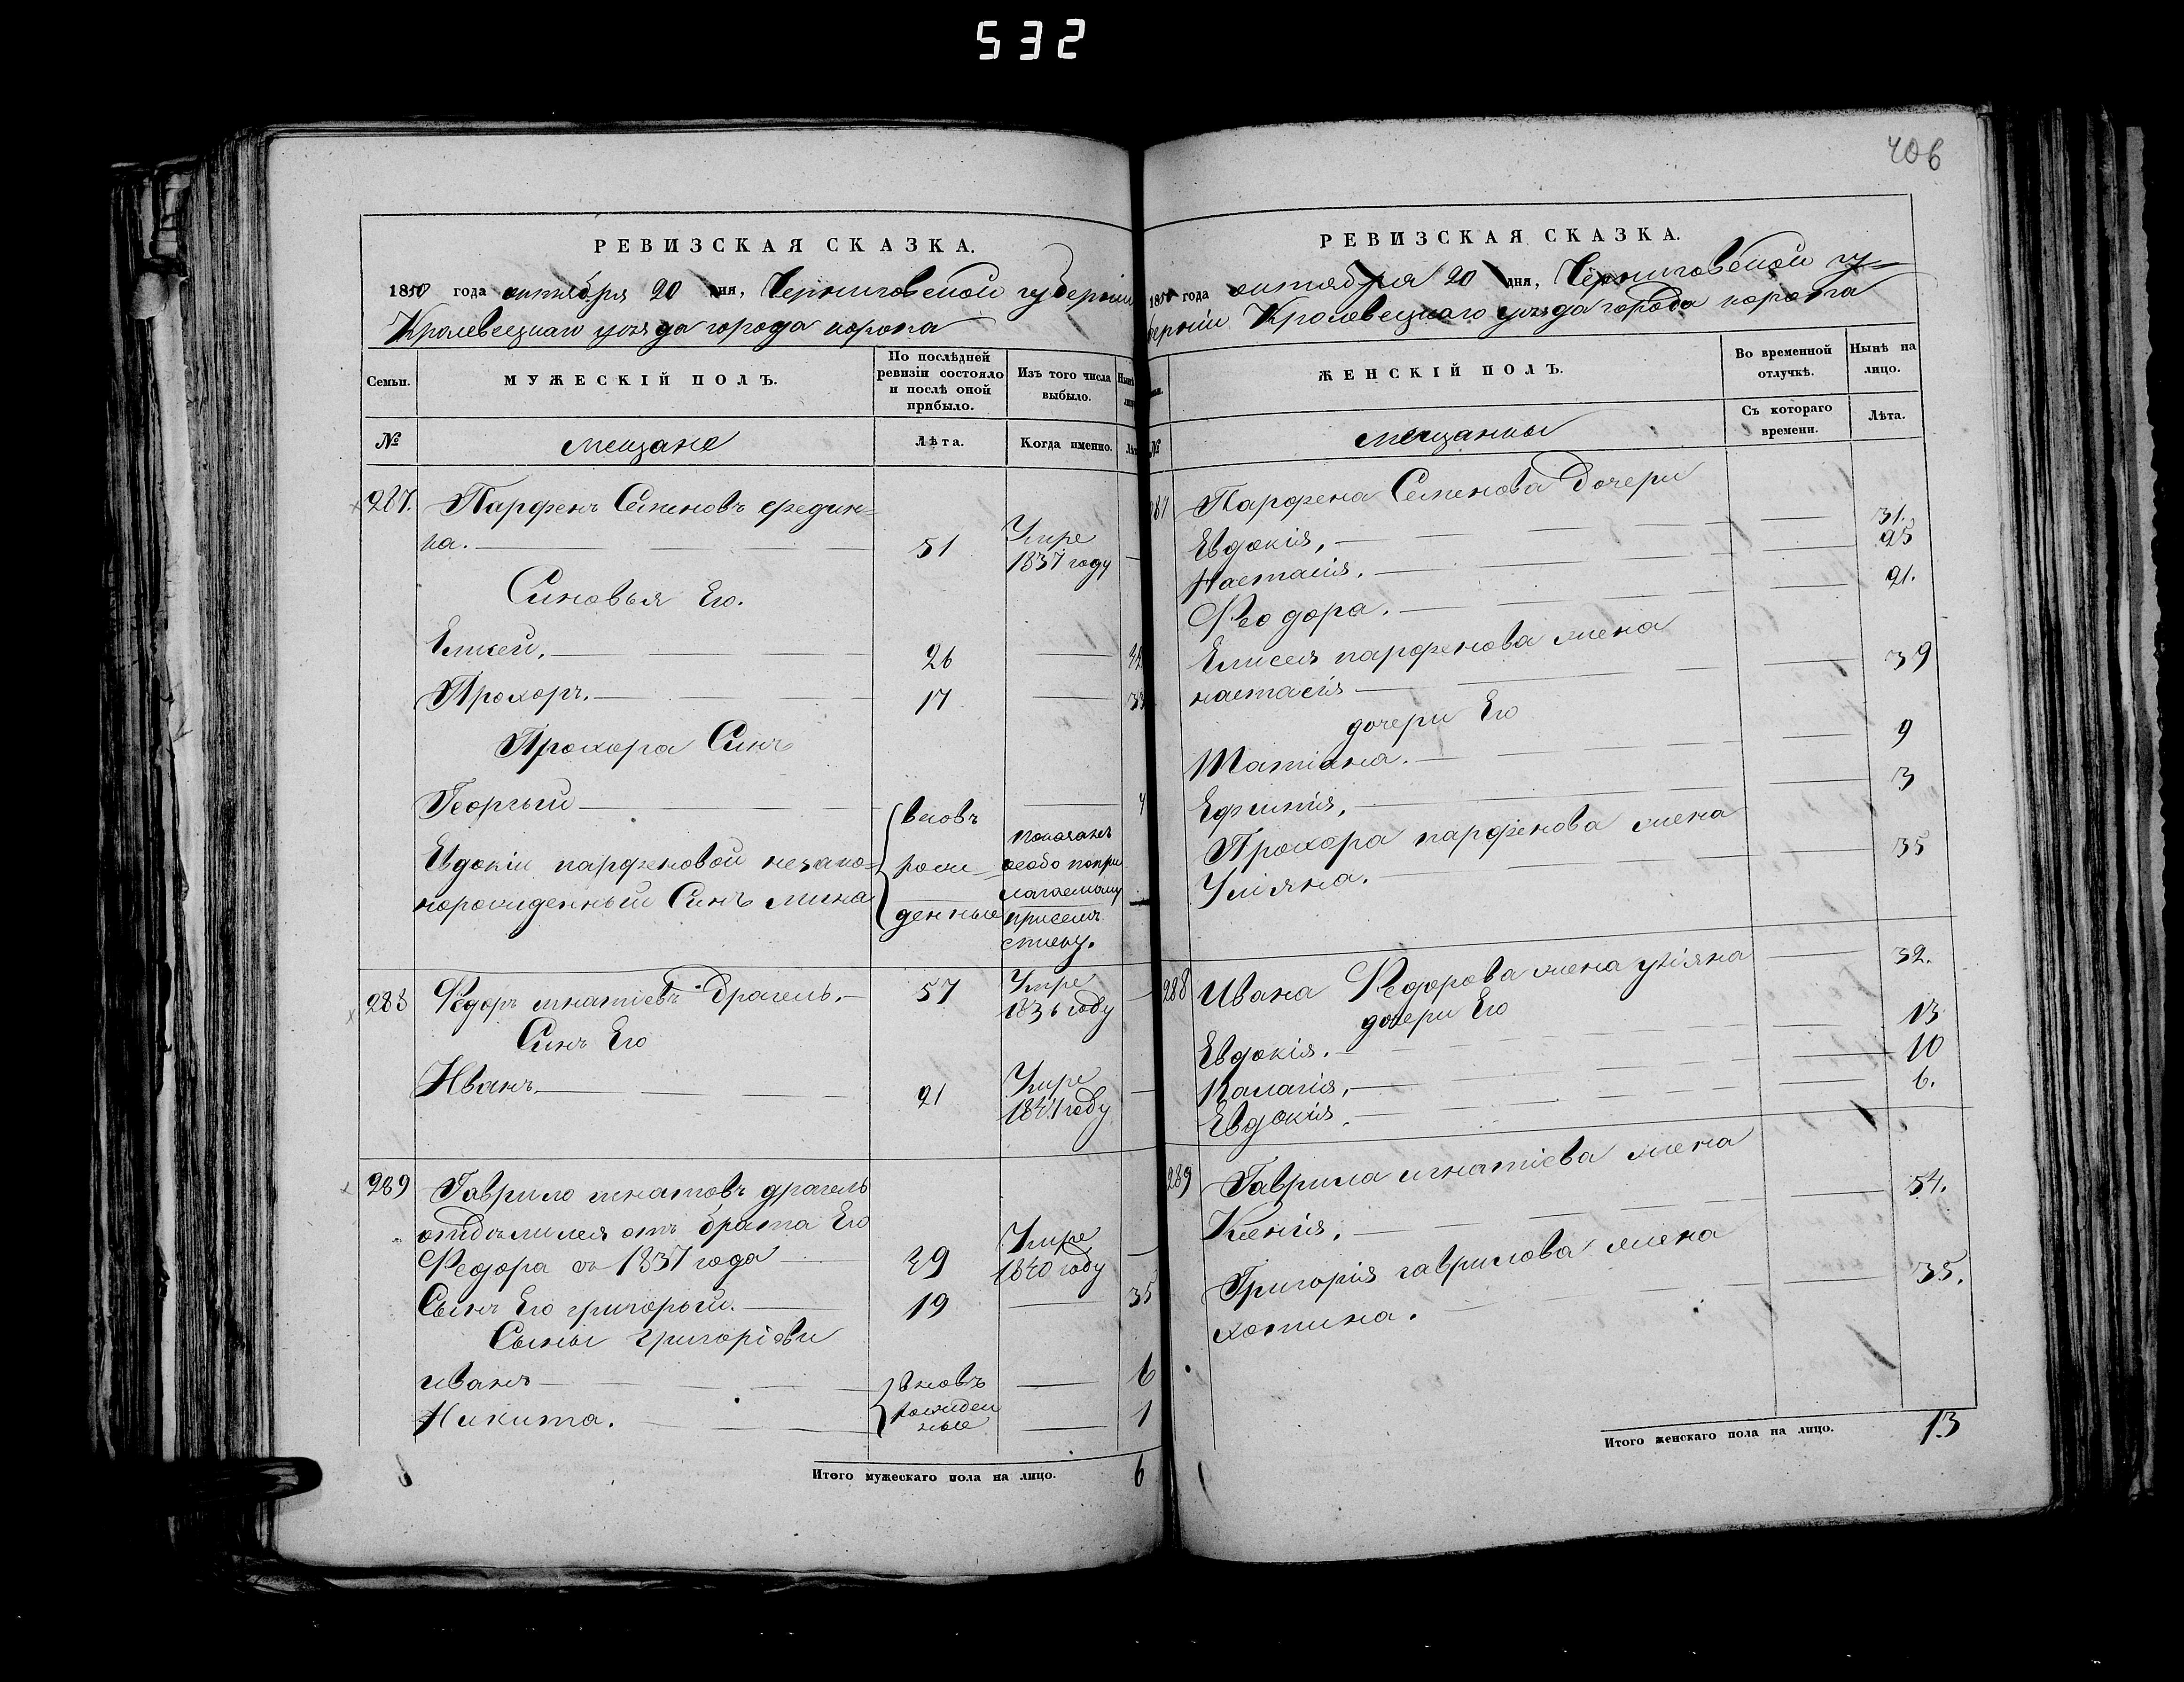 532
406
РЕВИЗСКАЯ СКАЗКА.
1850 года октября 20 дня, Черниговской губерніи
Кролевецкаго уѣзда города коропа
Семьи. МУЖЕСКІЙ ПОЛЪ. По послѣдней ревизіи состояло и послѣ оной прибыло. Изъ того числа выбыло. Нынѣ
№ мещане Лѣта. Когда именно.
287. Парфенъ Семеновъ
ка. 51 Умре 1837 году
Синовья Его.
Елисей. 26
Прохоръ. 17 33
Прохора Синъ
Георгый вновь 4
Евдокіи парфеновой незако= рож= показанъ особо попри
норожденный Синъ мина денные лагаемому присемъ
списку.
288 Федоръ игнатіевъ Драгель. 57 Умре 1836 году
Синъ Его
Иванъ. 21 Умре 1841 году
289 Гаврило игнатовъ драгель
отделился отъ брата Его
Федора въ 1837 года 49 Умре 1840 году
Сынъ Его григорый. 19 35
Сыны григоріеви
иванъ вновь 6
Никита. рожден ные 1
Итого мужескаго пола на лицо. 6
РЕВИЗСКАЯ СКАЗКА.
1850 года октября 20 дня, Черниговской гу=
берніи Кролевецкаго уѣзда города коропа
ЖЕНСКІЙ ПОЛЪ. Во временной отлучкѣ. Нынѣ на лицо.
№ мещанки Съ котораго времени. Лѣта.
287 Парфена Семенова Дочери
Евдокія, 31.
Настасія. 25
Феодора. 21.
Елисея парфенова жена
настасія 39
дочери Его
Татіана. 9
Ефимія, 3
Прохора парфенова жена
Уліяна. 35
288 Ивана Федорова жена уліяна 32.
дочери Его
Евдокія. 13
Палагія, 10
Евдокія. 6.
289 Гаврила игнатіева жена
Ксенія, 54.
Григорія гаврилова жена
хотина. 35.
Итого женскаго пола на лицо. 13